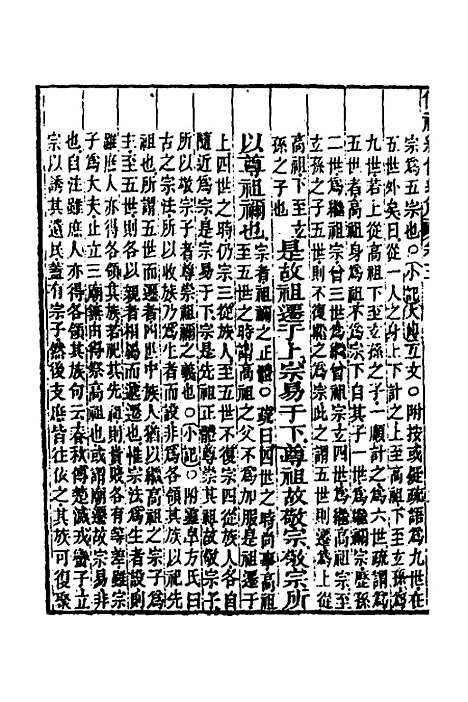 宗爲五宗也○小記大傳互文○附按或疑疏語爲九世在
五世外矣曰從一人之身上下計之上至高祖下至玄孫爲
九世若上從高祖下至玄孫之子一順計之爲六世疏謂爲
五世者高祖身爲本不爲宗下自其子一世爲繼禰宗歷孫
二世爲繼祖宗曾三世爲繼曾祖宗玄四世爲繼高祖宗至
玄孫之子五世則不復爲宗此之謂五世則遷爲上從
高祖下至玄
孫之子也
是故祖遷于上宗易于下尊祖故敬宗敬宗所
以尊祖禰也
宗者祖禰之正體○疏曰四世之時尚事高祖
至五世之時謂高祖之父不爲加服是祖遷于
上四世之時仍宗三從族人至五世不復宗四從族人各自
隨近爲宗是宗易于下宗是先祖正體尊崇其祖故敬宗子
所以敬宗子者尊崇祖禰之義也○小記○附嚴陵方氏曰
古之宗法所以收族乃爲生者而設非爲各領其族以祀先
祖也所謂五世而遷者四世中族人猶以繼高祖之宗子爲
主至五世則各以親者相屬而遞遷也惟宗法爲生者設則
雖庶人亦得各領其族若祀其先祖則貴賤各有等差雖宗
子爲大夫止立三廟無由得祭高祖也或謂廟遷故宗易非
也自注雖庶人亦得各領其族句云春秋傳楚滅戎蠻子立
宗以誘其遺民蓋有宗子然後支庶皆往依之其族可復聚